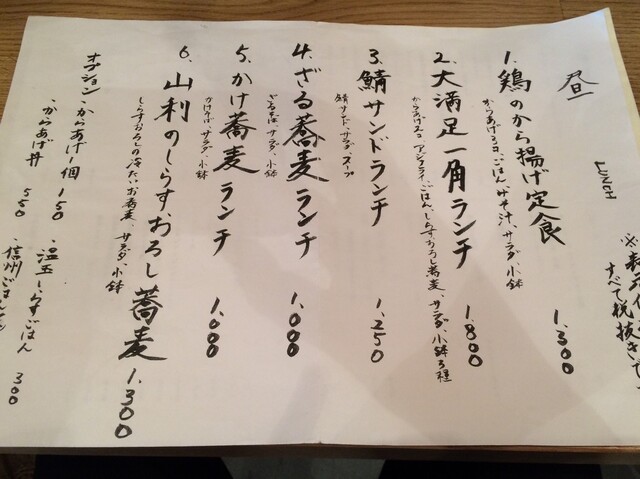 昼
LUNCH
※表示
すべて税抜きで
1. 鶏のから揚げ定食 1.300
からあげ3コ、ごはん、みそ汁、サラダ、小鉢
2. 大満足一角ランチ 1.800
からあげ2コ、アジフライ、ごはん、しらすおろし蕎麦、サラダ、小鉢3種
3. 鯖サンドランチ 1.250
鯖サンド、サラダ、スープ
4. ざる蕎麦ランチ 1.000
ざるそば、サラダ、小鉢
5. かけ蕎麦ランチ 1.000
かけそば、サラダ、小鉢
6. 山利のしらすおろし蕎麦 1.300
しらすおろしの冷たいお蕎麦、サラダ、小鉢
オプション・からあげ1個 150
・からあげ丼 550
・温玉しらすごはん 300
・信州ごはん